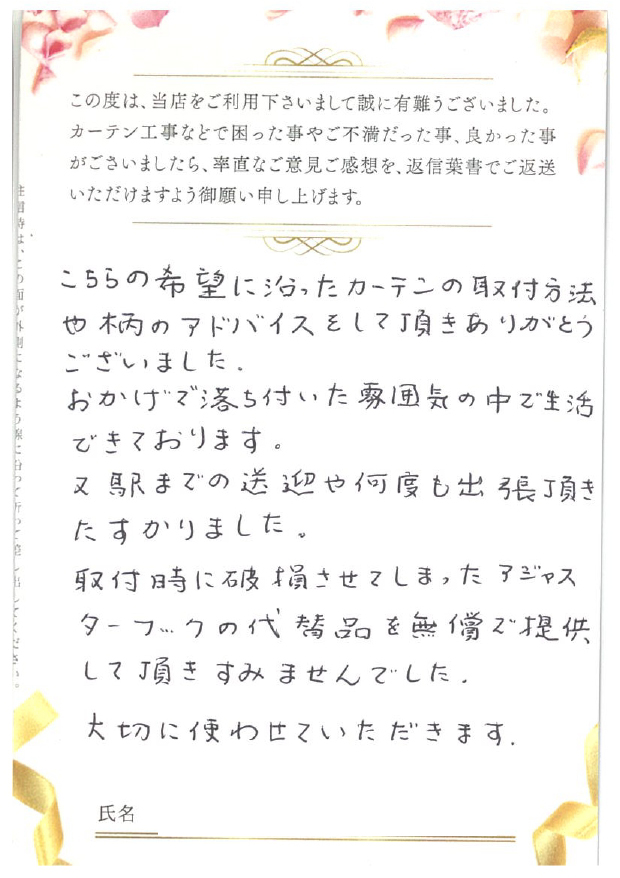 この度は、当店をご利用下さいまして誠に有難うございました。
カーテン工事などで困った事やご不満だった事、良かった事
がございましたら、率直なご意見ご感想を、返信葉書でご返送
いただけますよう御願い申し上げます。
こちらの希望に沿ったカーテンの取付方法
や柄のアドバイスをして頂きありがとう
ございました.
おかげで落ち付いた雰囲気の中で生活
できております。
又駅までの送迎や何度も出張頂き
たすかりました。
取付時に破損させてしまったアジャス
ターフックの代替品を無償で提供
して頂きすみませんでした.
大切に使わせていただきます.
氏名